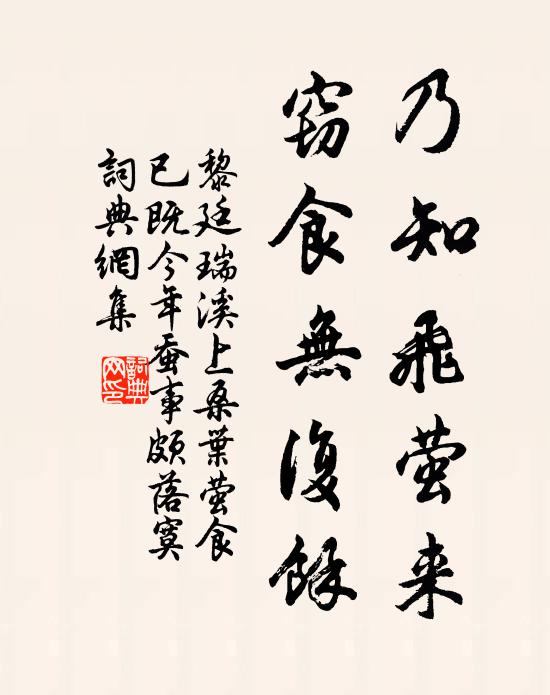 乃知飛萤来
窃食無復餘
黎廷瑞溪上桑葉萤食
已既今年蚕事頗落寞
詞典網集
詞典網印